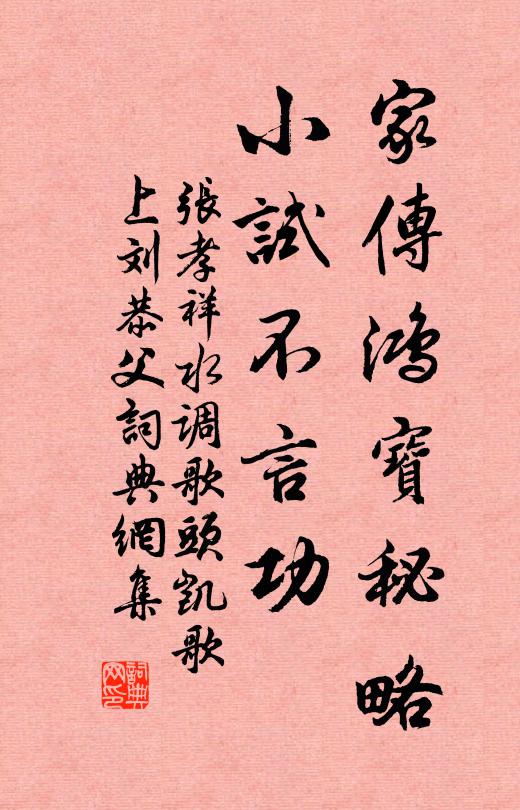 家傳鴻寶秘略
小試不言功
張孝祥水调歌頭凯歌
上刘恭父詞典網集
詞典网印